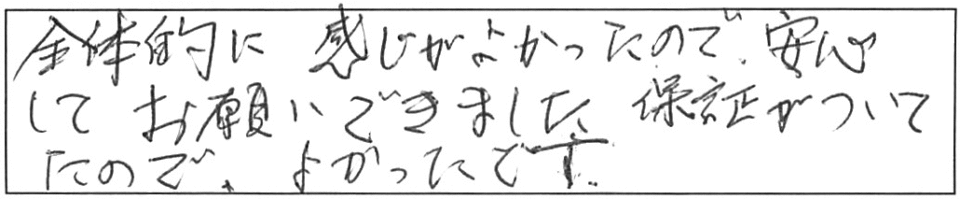 全体的に 感じがよかったので、安心
して お願いできました、保証がついて
たので、よかったです。